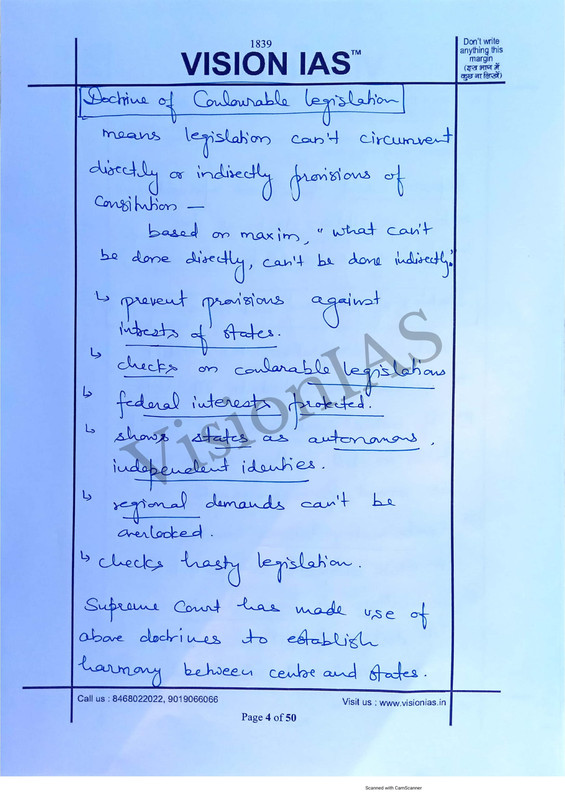 1839
VISION IAS™
Don't write
anything this
margin
(इस भाग में
कुछ ना लिखें)
Doctrine of Coulourable legislation
means legislation can't circumvent
directly or indirectly provisions of
Consitution —
based on maxim, "what can't
be done directly, can't be done indirectly."
↳ prevent provisions against
intrests of states.
↳ checks on coularable legislations
↳ federal interests protected.
↳ shows states as autonomous,
independent identies.
↳ regional demands can't be
overlooked.
↳ checks hasty legislation.
Supreme Court has made use of
above doctrines to establish
harmony between centre and states.
VisionIAS
Call us : 8468022022, 9019066066
Visit us : www.visionias.in
Page 4 of 50
Scanned with CamScanner